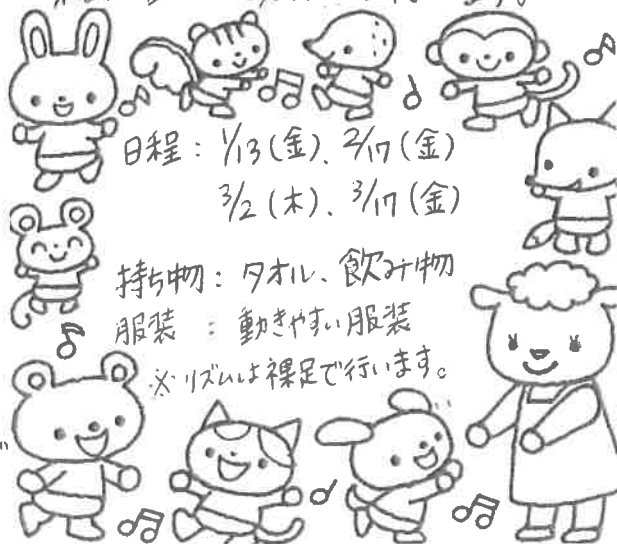 日程：1/13（金）、2/17（金）
3/2（木）、3/17（金）
持ち物：タオル、飲み物
服装：動きやすい服装
※リズムは裸足で行います。